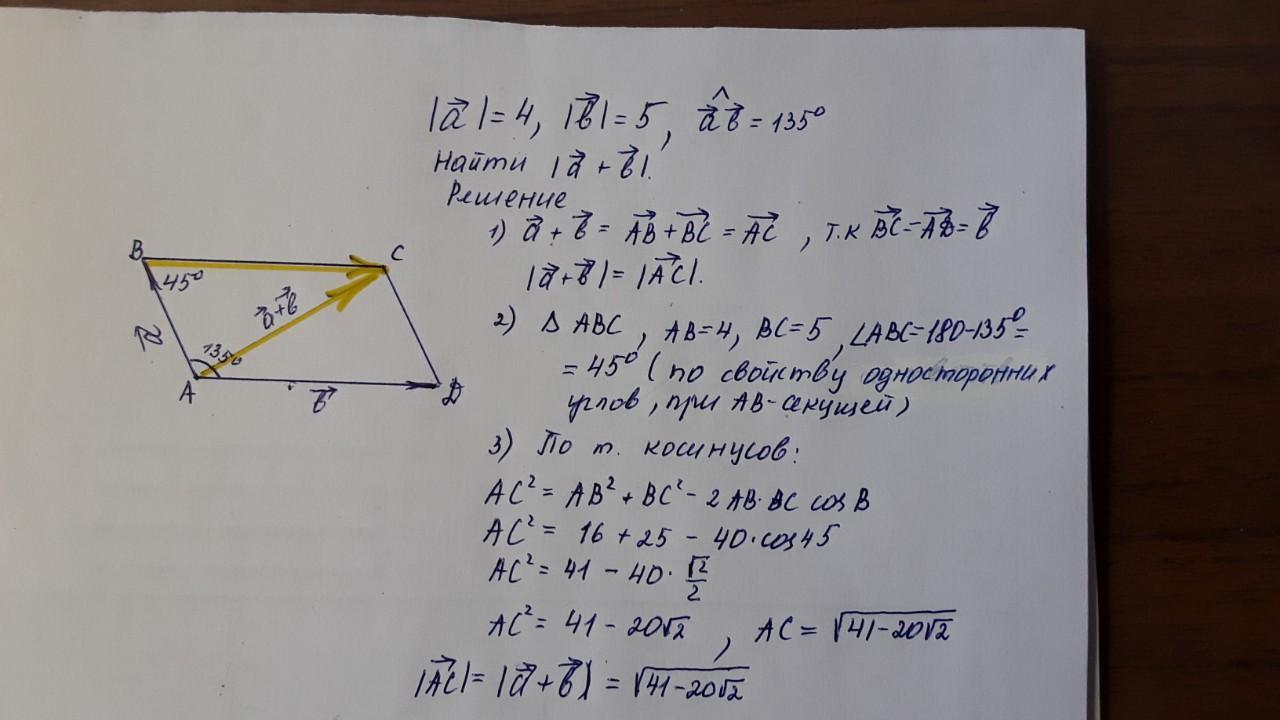 |a⃗| = 4, |b⃗| = 5, a⃗^b⃗ = 135°
Найти |a⃗ + b⃗|.
Решение
1) a⃗ + b⃗ = AB⃗ + BC⃗ = AC⃗, т.к BC⃗ = AD⃗ = b⃗
|a⃗ + b⃗| = |AC⃗|.
2) Δ ABC, AB = 4, BC = 5, ∠ABC = 180 - 135° =
= 45° (по свойству односторонних
углов, при AB - секущей)
3) По т. косинусов:
AC² = AB² + BC² - 2 AB · BC cos B
AC² = 16 + 25 - 40 · cos 45
AC² = 41 - 40 · √2/2
AC² = 41 - 20√2, AC = √(41 - 20√2)
|AC⃗| = |a⃗ + b⃗| = √(41 - 20√2)
B
C
45°
a⃗ + b⃗
a⃗
135°
A
b⃗
D